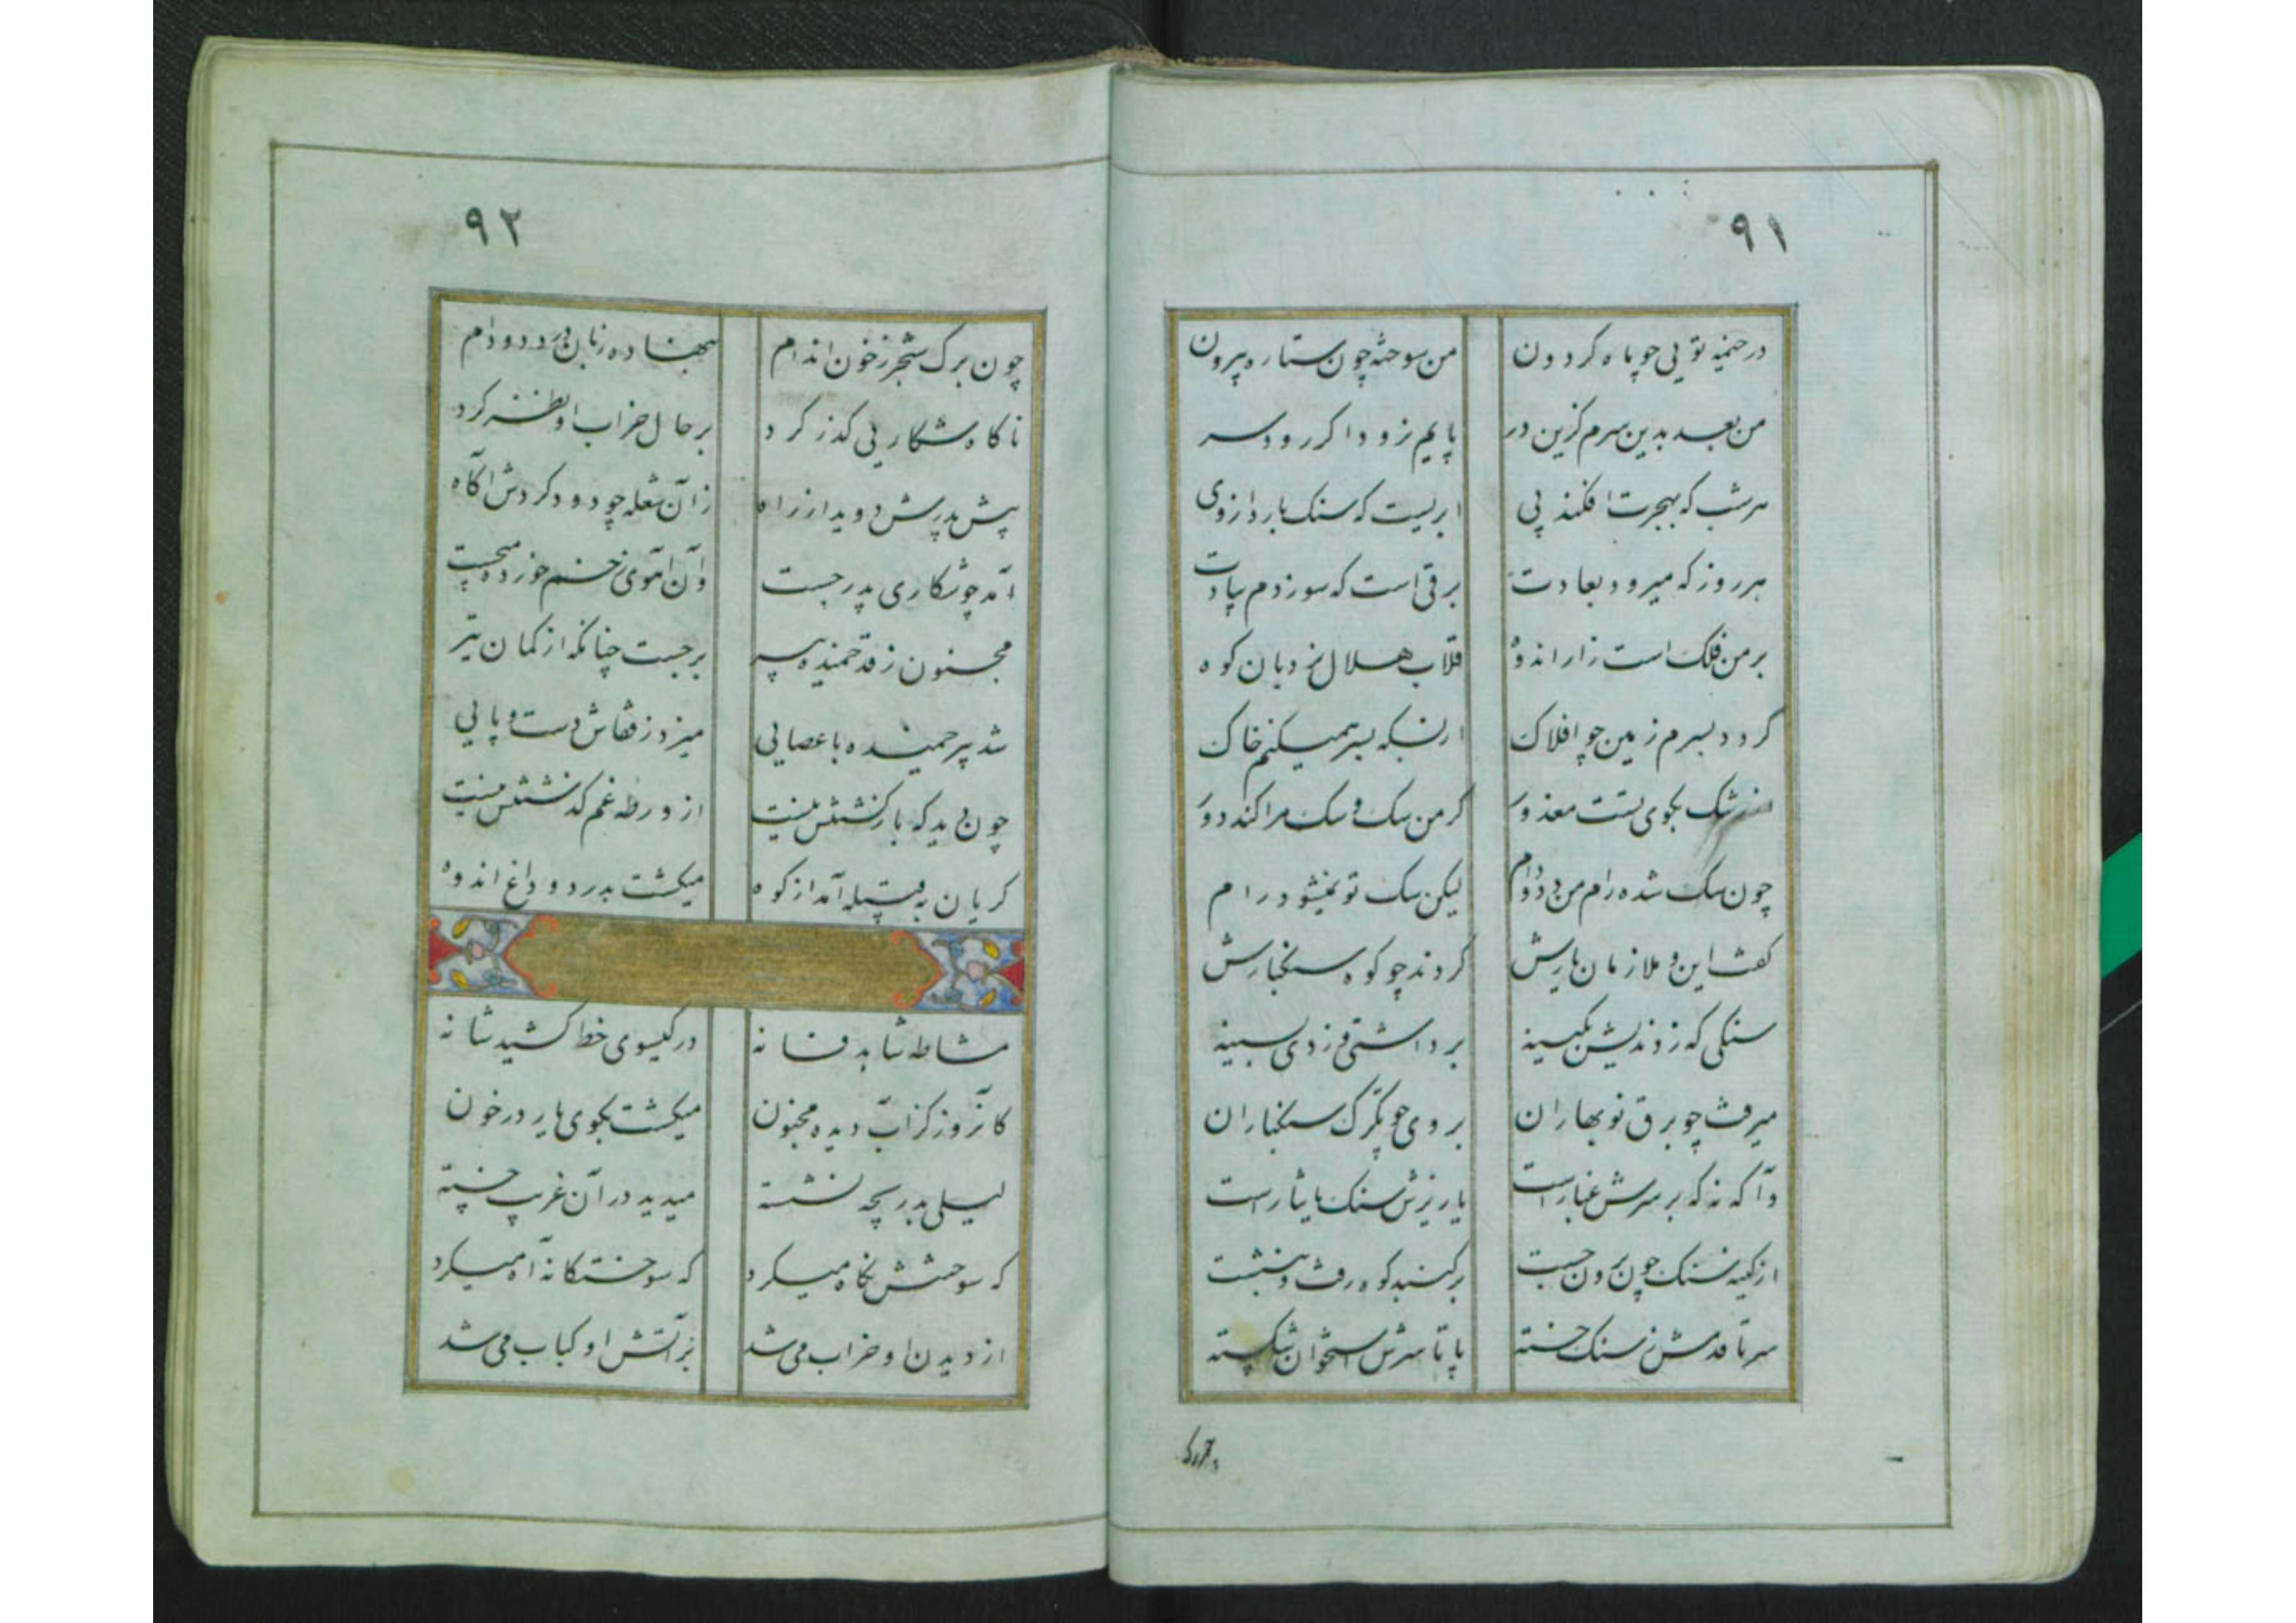 ۹۱
در خیمه تویی چو ماه کردون من سوخته چون ستاره بیرون
من بعد بدین سرم کزین در پایم نرود اکر رود سر
هر شب که بهجرت افکند پی ابریست که سنک بارد از وی
هر روز که میرود بعادت برقی است که سوزدم
بر من فلک است زار اندوه قلاب هلال کوه
کردد بسرم زمین چو افلاک از بسکه بسر همیکنم خاک
بکوی تست معذور کر من سک و سک مرا کند دور
چون سک شده رام من دد و دام لیکن سک تو نمیشود رام
کفت این و ملازمان یارش کردند چو کوه سنکبارش
سنکی که زدندیش بکینه برداشتی و زدی بسینه
میرفت چو برق نوبهاران بر وی چو تکرک سنکباران
وآکه نه که بر سرش غبار است یا ریزش سنک یا نثار است
از کینه سنک چون برون جست بر کنبد کوه رفت و بنشست
سر تا قدمش ز سنک خسته پا تا سرش استخوان شکسته
۹۲
چون برک شجر ز خون اندام بنهاده زبان برد دد و دام
ناکاه شکاریی کذر کرد بر حال خراب او نظر کرد
پیش پدرش دوید از راه زان شعله چو دود کردش آکاه
آمد چو شکاری پدر جست وآن آهوی زخم خورده میجست
مجنون ز قد خمیده پیر برجست چنانکه از کمان تیر
شد پیر خمیده با عصایی میزد ز قفاش دست و پایی
چون دید که بازکشتنش نیست از ورطه غم کذشتنش نیست
کریان به قبیله آمد از کوه میکشت بدرد و داغ اندوه
مشاطه شاهد فسانه در کیسوی خط کشید شانه
کانروز کز آب دیده مجنون میکشت بکوی یار در خون
لیلی بدریچه نشسته میدید در آن غریب خسته
که سوختنش نکاه میکرد که سوختکانه آه میکرد
از دیدن او خراب می شد بر آتش او کباب می شد